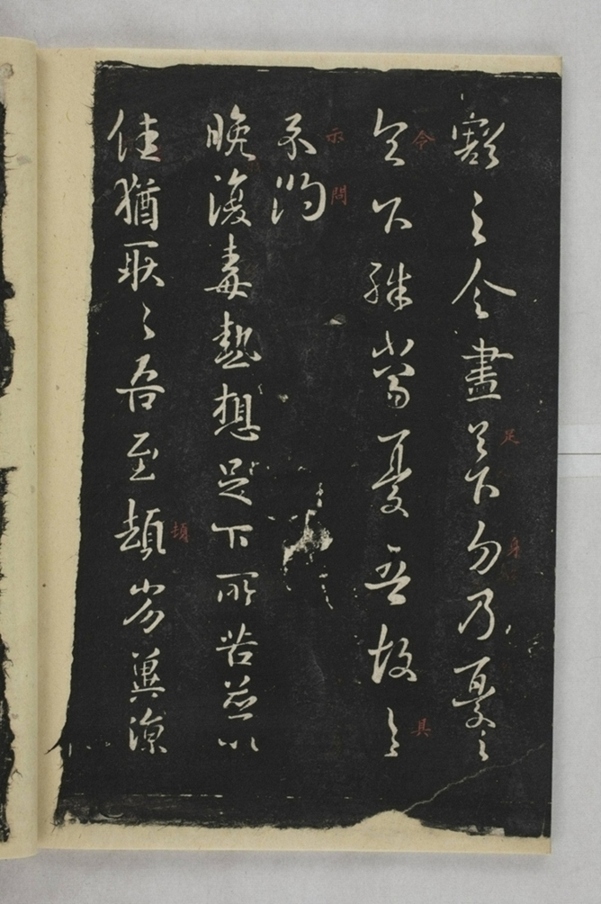 豁之令盡足下勿乃憂之
令下殊當憂吾故具
示問
晚復毒熱想足下所苦並以
佳猶耿耿吾至頓劣冀涼